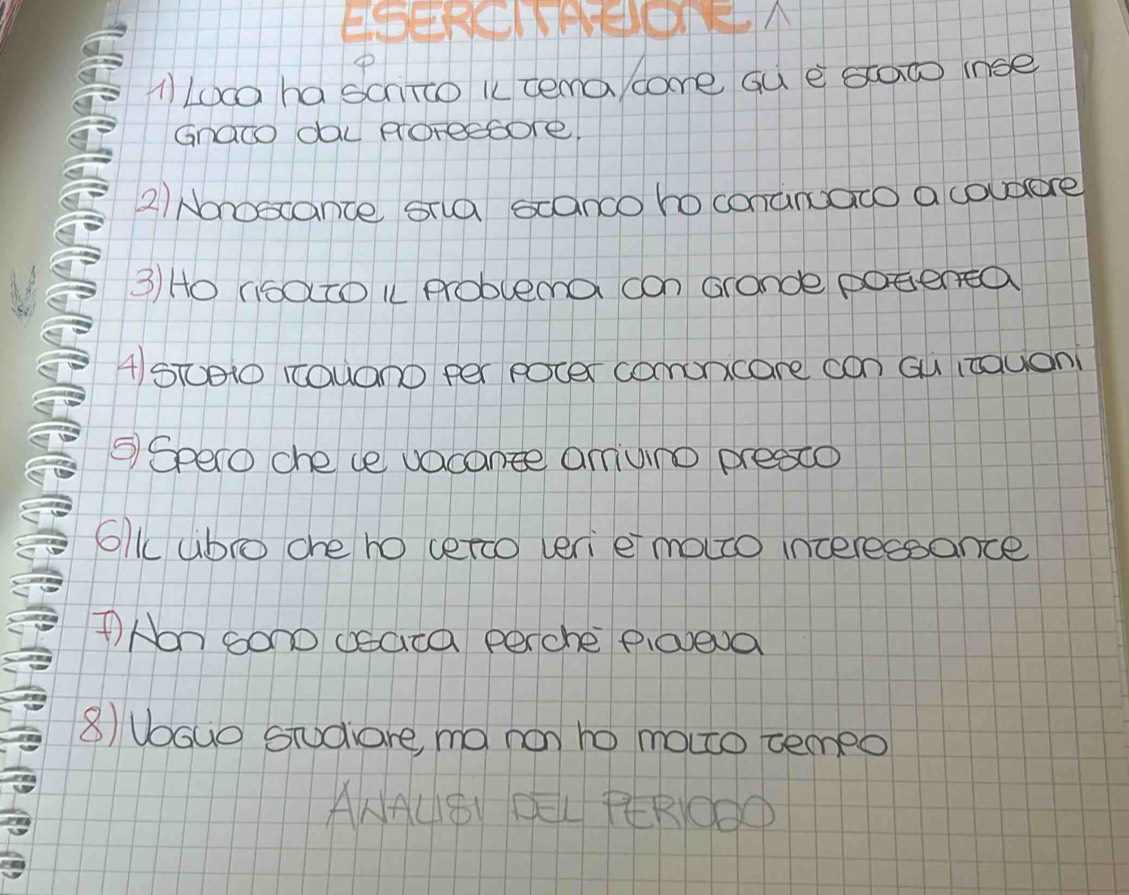 ESERCITAZIONE 1
P
1) Luca ha scritto il tema/come gli è stato inse
gnato dal professore.
2) Nonostante sria stanco ho continuato a
3) Ho risolto il problema con grande pazienza
4) studio italiano per poter comunicare con gli italiani
5) Spero che le vacanze arrivino presto
6) Il libro che ho letto ieri è molto interessante
7) Non sono uscita perchè pioveva
8) Voglio studiare, ma non ho molto tempo
ANALISI DEL PERIODO